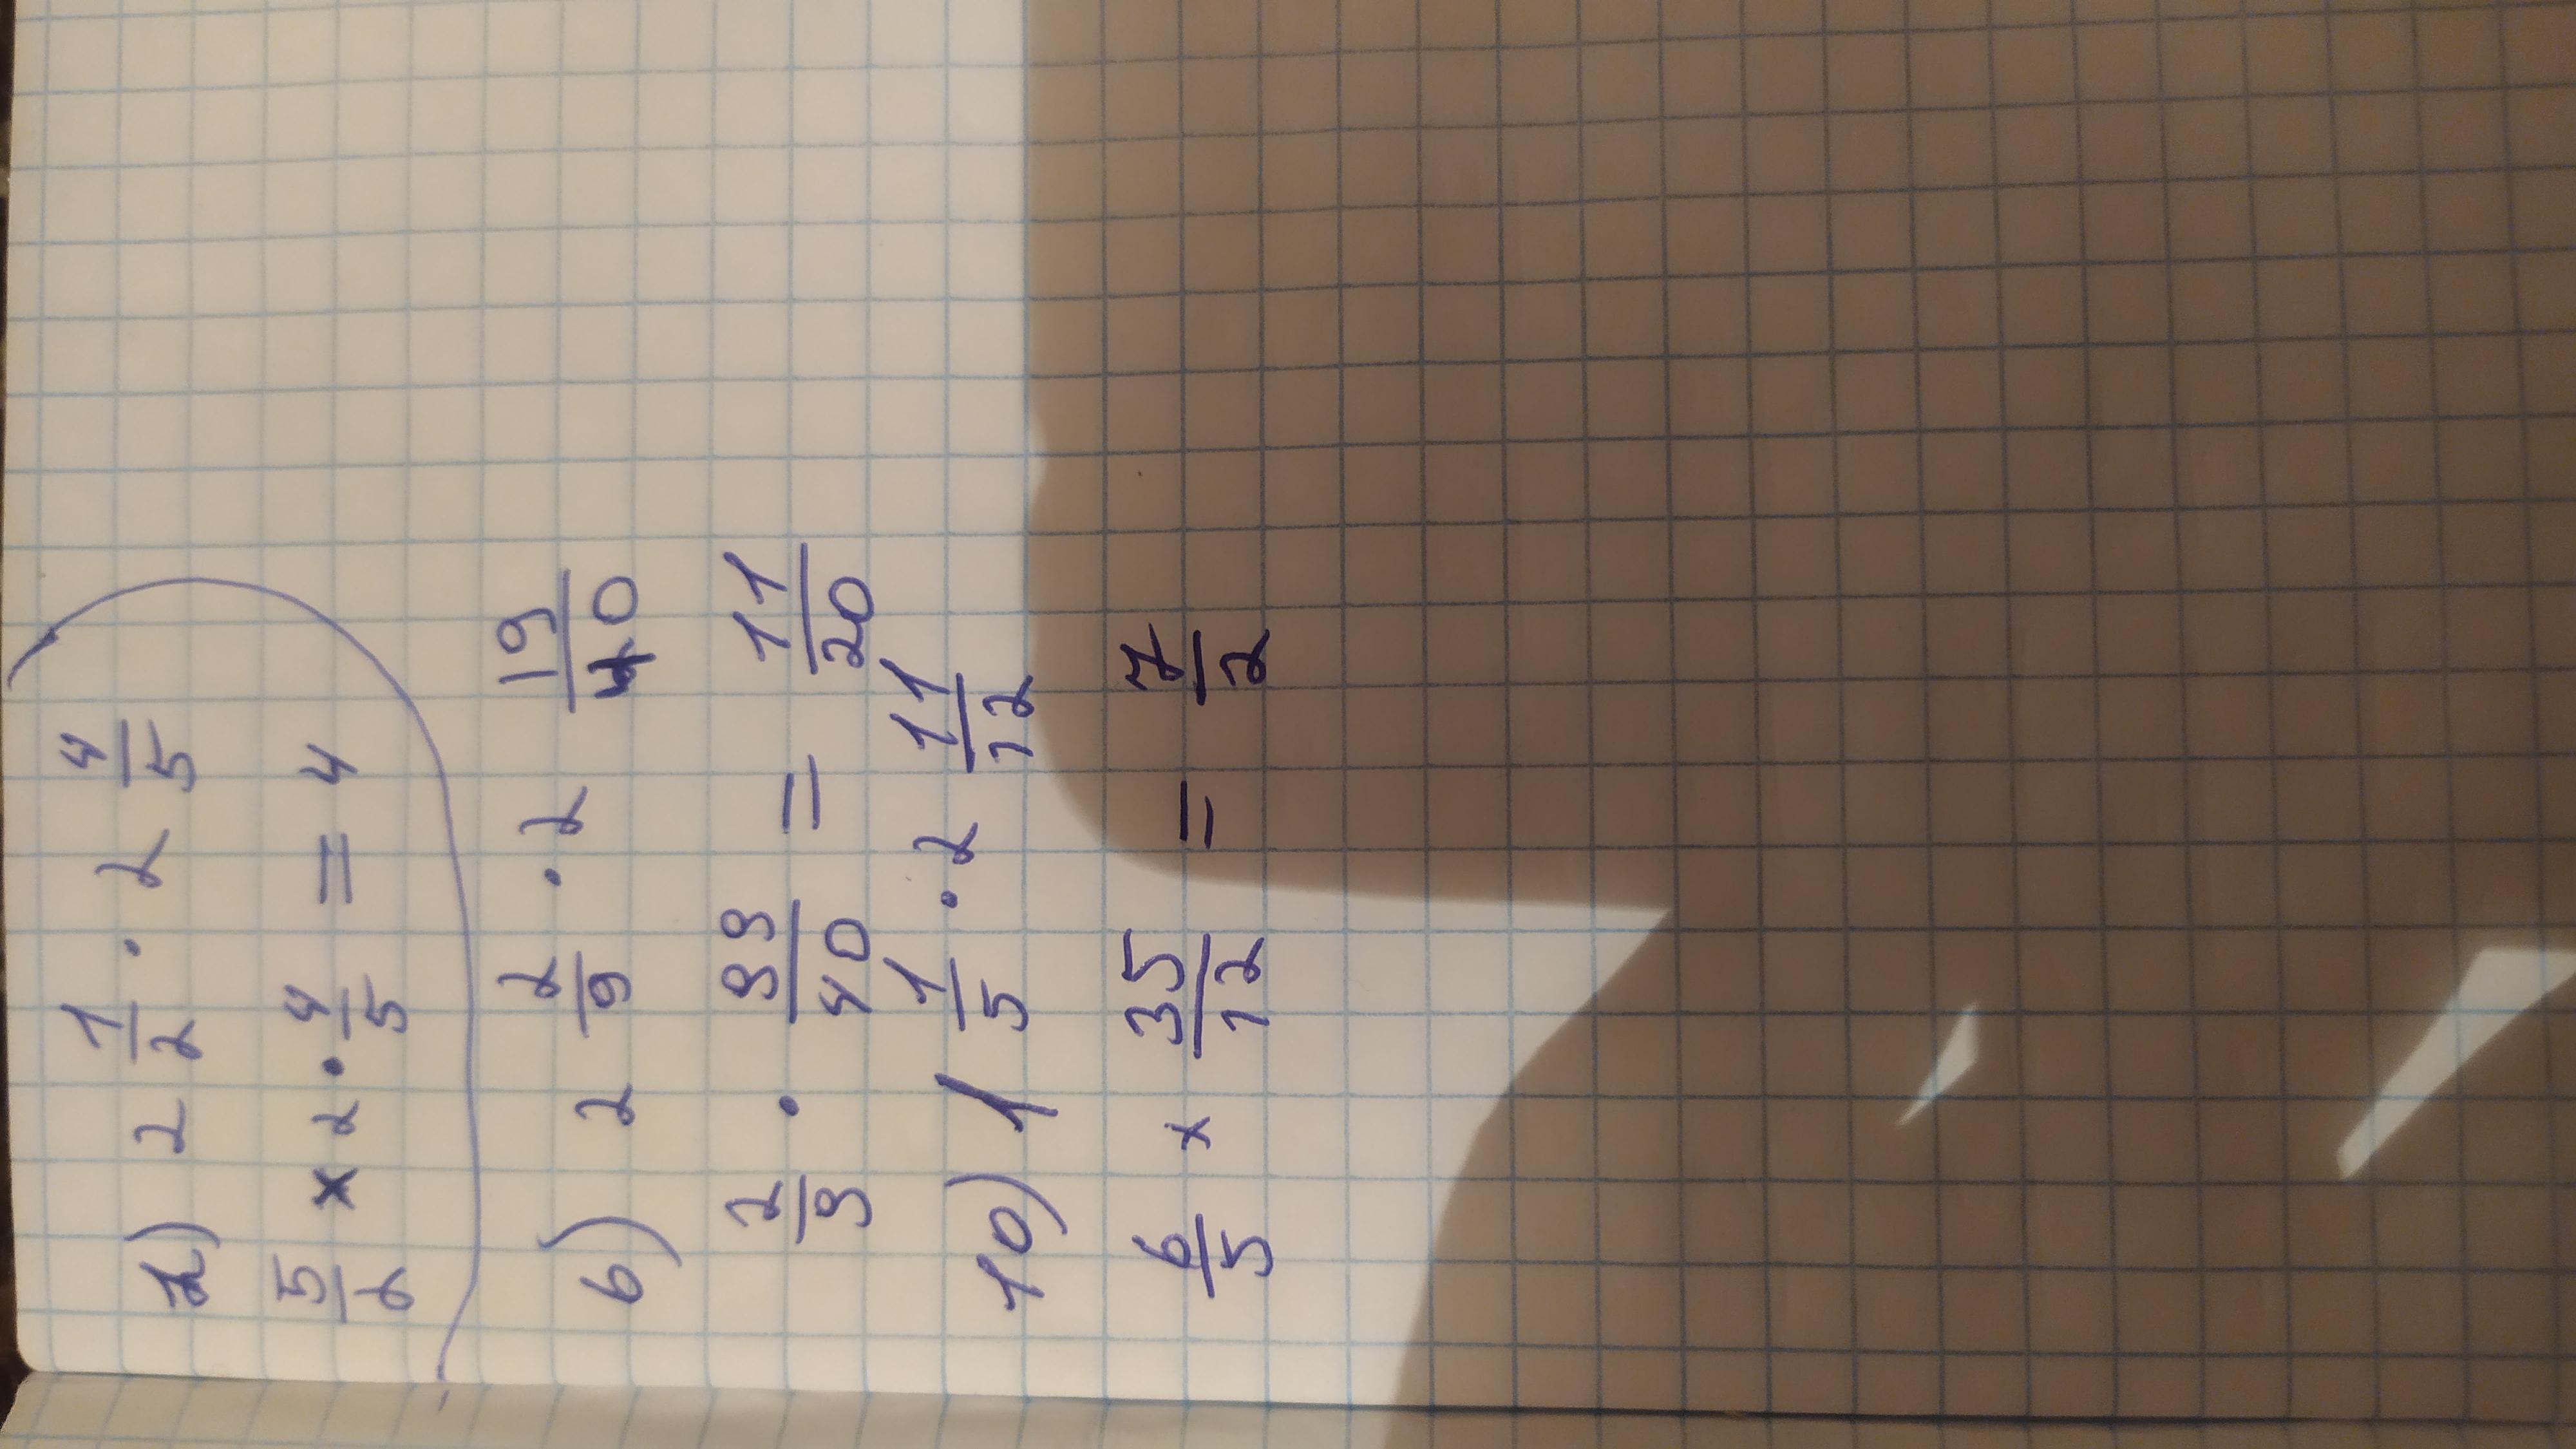 2) 2 1/2 · 2 4/5
5/2 × 2 · 4/5 = 4
6) 2 2/9 · 2 19/40
2/9 · 99/40 = 11/20
10) 1 1/5 · 2 11/12
6/5 × 35/12 = 7/2